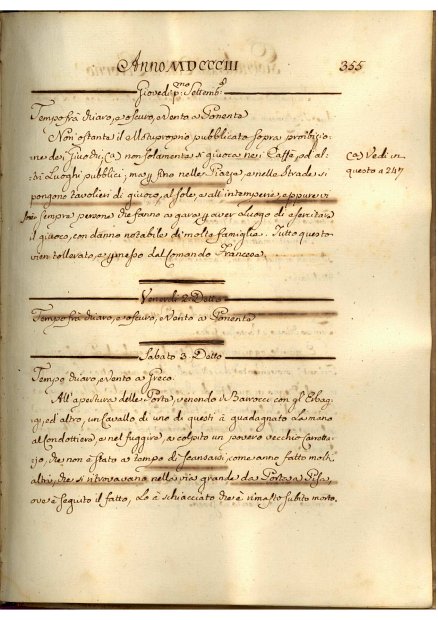 Anno MDCCCIII
355
Giovedì p:mo Settemb:e
Tempo frà chiaro, e oscuro, e Vento a Ponente
Non ostante il Motuproprio pubblicato sopra proibizio-
ne dei Giuochi, (a) non solamente si giuoca nei Caffè, ed al-
tri Luoghi pubblici, ma fino nelle Piazze, e nelle Strade si
(a) Vedi in
questo a 247
pongono tavolieri di giuoco, al sole, e all'intemperie, eppure vi
sempre persone che fanno a gara p aver Luogo di esercitare
il giuoco, con danno notabile di molte famiglie. Tutto questo
vien tollerato, e pmesso dal Comando Francese.
Venerdì 2 Detto
Tempo frà chiaro, e oscuro, e Vento a Ponente
Sabato 3 Detto
Tempo chiaro, e Vento a Greco
All'apertura delle Porte, venendo i Barrocci con gl'Erbag-
gi, ed altro, un Cavallo di uno di questi à guadagnato la mano
al Condottiere, e nel fuggire, à colpito un povero vecchio
che non è stato a tempo di scansarsi, come anno fatto molti
altri, che si ritrovavano nella via grande da Porta a Pisa,
ove è seguito il fatto, Lo à schiacciato che è rimasto subito morto.